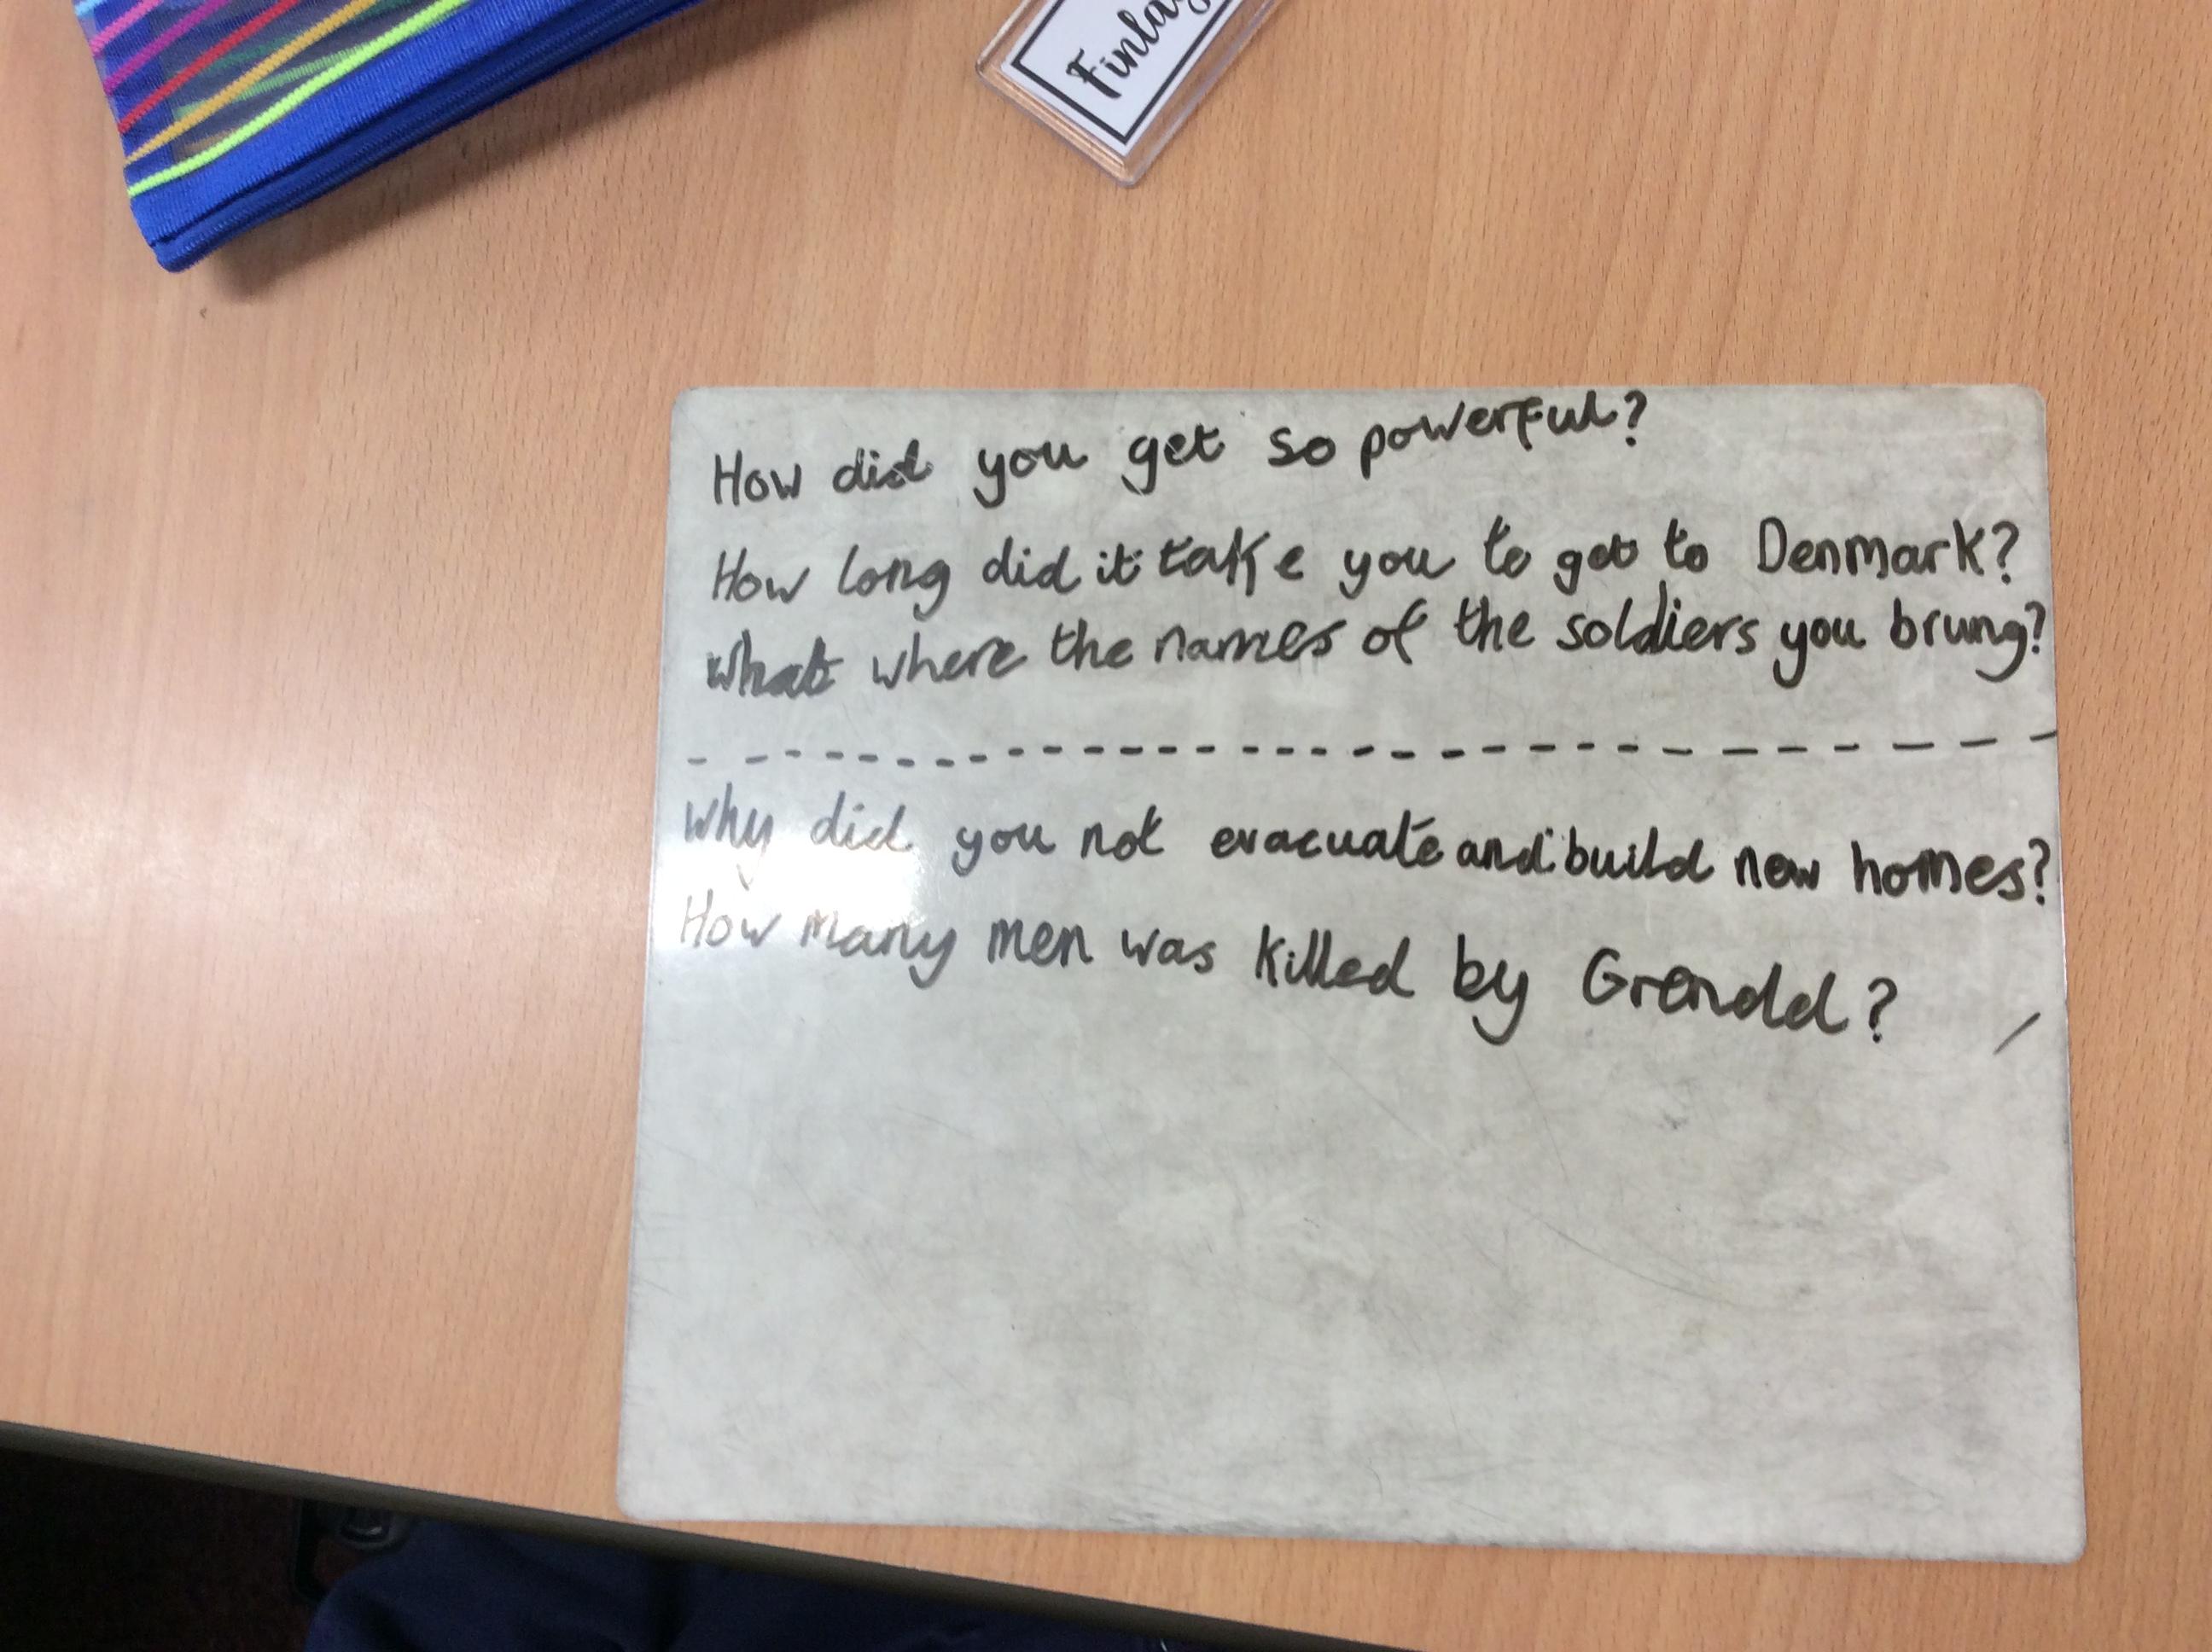 Finlay
How did you get so powerful?
How long did it take you to get to Denmark?
what where the names of the soldiers you brung?
why did you not evacuate and build new homes?
How many men was killed by Grendel?